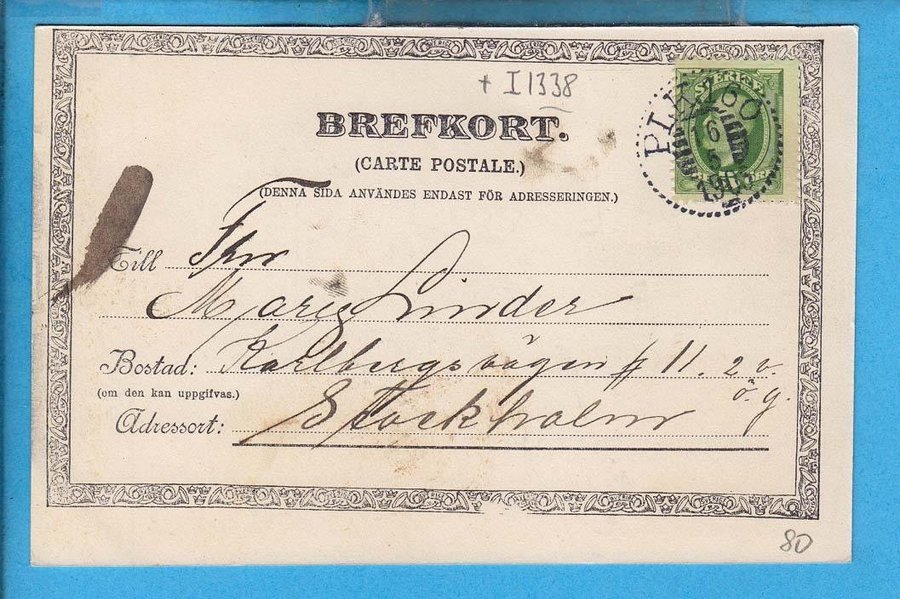 + I 1338
BREFKORT.
(CARTE POSTALE.)
(DENNA SIDA ANVÄNDES ENDAST FÖR ADRESSERINGEN.)
SVERIGE
PLK 60
6
190
Till
Mary Linder
Bostad: Karlbergsvägen # 11. 2 v.
ö. g.
(om den kan uppgifvas.)
Adressort: Stockholm
80